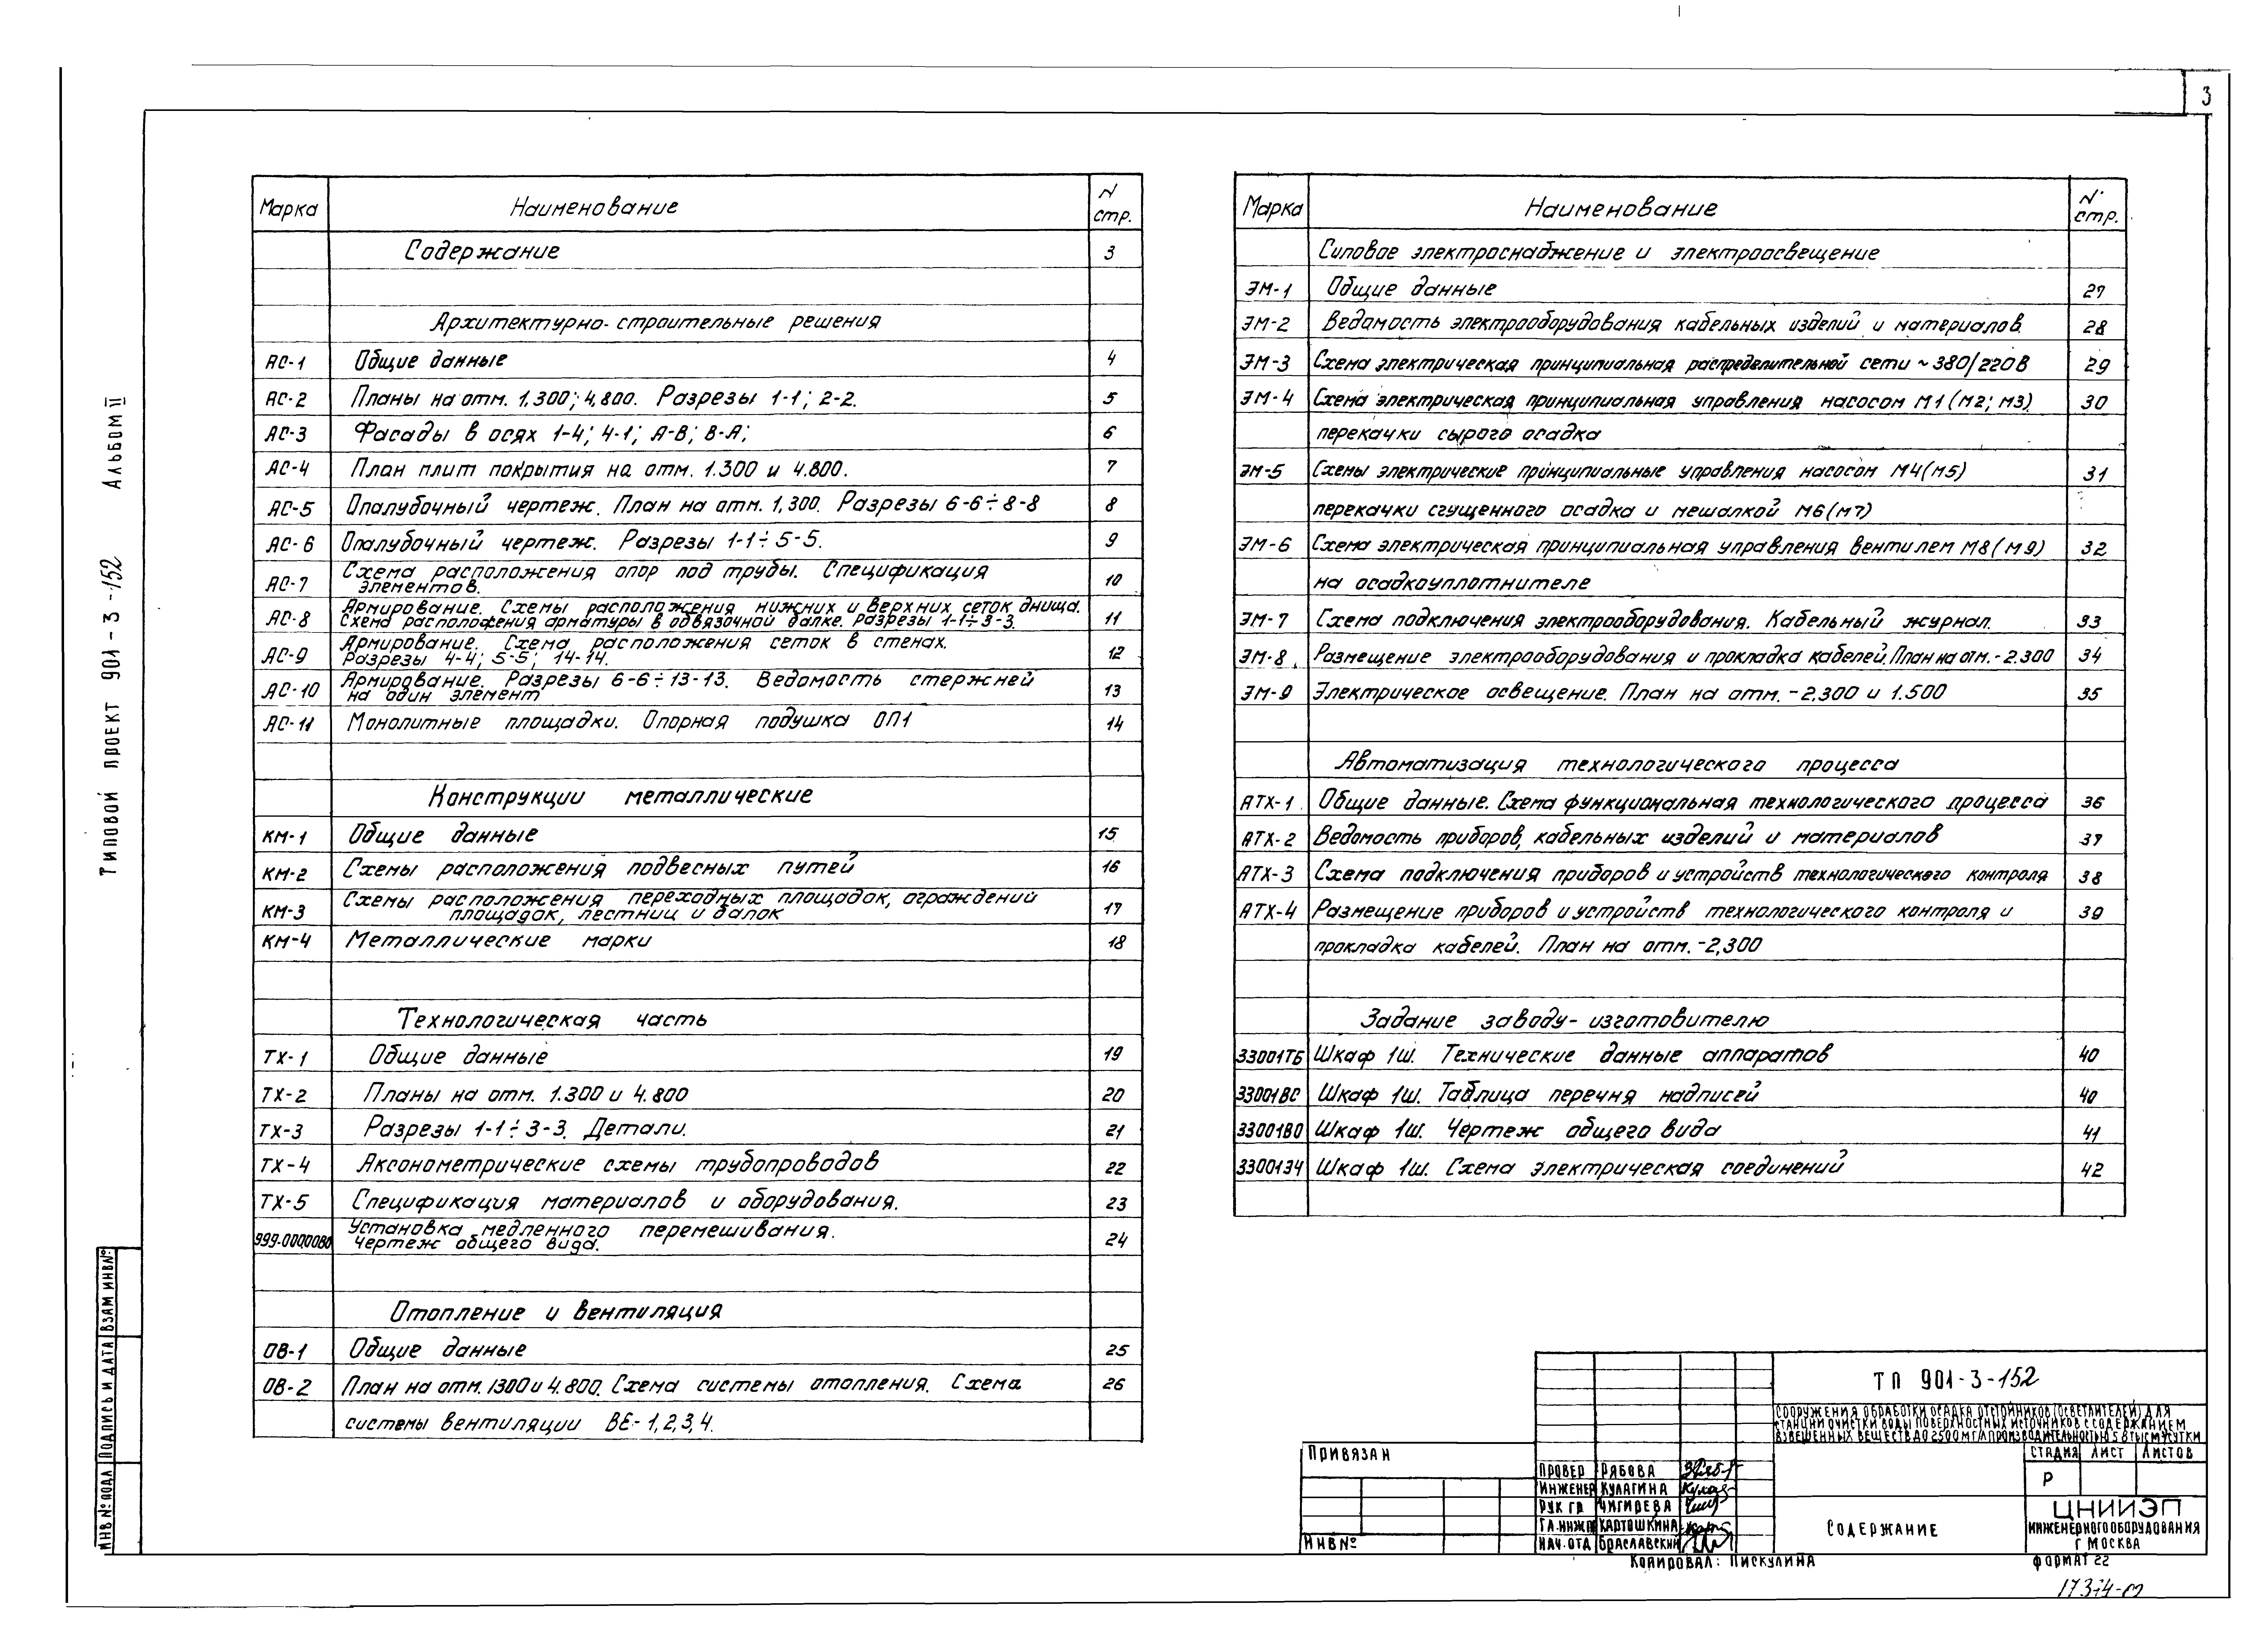 3
ТИПОВОЙ ПРОЕКТ 901-3-152 АЛЬБОМ II
Марка Наименование N стр.
Содержание 3
Архитектурно-строительные решения
АС-1 Общие данные 4
АС-2 Планы на отм. 1.300; 4.800. Разрезы 1-1; 2-2. 5
АС-3 Фасады в осях 1-4; 4-1; А-В; В-А; 6
АС-4 План плит покрытия на отм. 1.300 и 4.800. 7
АС-5 Опалубочный чертеж. План на отм. 1,300. Разрезы 6-6÷8-8 8
АС-6 Опалубочный чертеж. Разрезы 1-1÷5-5. 9
АС-7 Схема расположения опор под трубы. Спецификация 10
элементов.
АС-8 Армирование. Схемы расположения нижних и верхних сеток днища. 11
Схема расположения арматуры в обвязочной балке. Разрезы 1-1÷3-3.
АС-9 Армирование. Схема расположения сеток в стенах. 12
Разрезы 4-4; 5-5; 14-14.
АС-10 Армирование. Разрезы 6-6÷13-13. Ведомость стержней 13
на один элемент
АС-11 Монолитные площадки. Опорная подушка ОП1 14
Конструкции металлические
КМ-1 Общие данные 15
КМ-2 Схемы расположения подвесных путей 16
КМ-3 Схемы расположения переходных площадок, ограждений 17
площадок, лестниц и балок
КМ-4 Металлические марки 18
Технологическая часть
ТХ-1 Общие данные 19
ТХ-2 Планы на отм. 1.300 и 4.800 20
ТХ-3 Разрезы 1-1÷3-3. Детали. 21
ТХ-4 Аксонометрические схемы трубопроводов 22
ТХ-5 Спецификация материалов и оборудования. 23
999-0000080 Установка медленного перемешивания. 24
Чертеж общего вида.
Отопление и вентиляция
ОВ-1 Общие данные 25
ОВ-2 План на отм. 1300 и 4.800. Схема системы отопления. Схема 26
системы вентиляции ВЕ-1,2,3,4.
Марка Наименование N стр.
Силовое электроснабжение и электроосвещение
ЭМ-1 Общие данные 27
ЭМ-2 Ведомость электрооборудования кабельных изделий и материалов. 28
ЭМ-3 Схема электрическая принципиальная распределительной сети ~380/220В 29
ЭМ-4 Схема электрическая принципиальная управления насосом М1(М2; М3) 30
перекачки сырого осадка
ЭМ-5 Схемы электрические принципиальные управления насосом М4(М5) 31
перекачки сгущенного осадка и мешалкой М6(М7)
ЭМ-6 Схема электрическая принципиальная управления вентилем М8(М9) 32
на осадкоуплотнителе
ЭМ-7 Схема подключения электрооборудования. Кабельный журнал. 33
ЭМ-8 Размещение электрооборудования и прокладка кабелей. План на отм. -2.300 34
ЭМ-9 Электрическое освещение. План на отм. -2.300 и 1.500 35
Автоматизация технологического процесса
АТХ-1 Общие данные. Схема функциональная технологического процесса 36
АТХ-2 Ведомость приборов, кабельных изделий и материалов 37
АТХ-3 Схема подключения приборов и устройств технологического контроля 38
АТХ-4 Размещение приборов и устройств технологического контроля и 39
прокладка кабелей. План на отм. -2,300
Задание заводу-изготовителю
33001ТБ Шкаф 1Ш. Технические данные аппаратов 40
33001ВС Шкаф 1Ш. Таблица перечня надписей 40
33001В0 Шкаф 1Ш. Чертеж общего вида 41
3300134 Шкаф 1Ш. Схема электрическая соединений 42
ИНВ № ПОДЛ ПОДПИСЬ И ДАТА ВЗАМ ИНВ №
ПРИВЯЗАН
ИНВ №
ТП 901-3-152
СООРУЖЕНИЯ ОБРАБОТКИ ОСАДКА ОТСТОЙНИКОВ (ОСВЕТЛИТЕЛЕЙ) ДЛЯ
СТАНЦИИ ОЧИСТКИ ВОДЫ ПОВЕРХНОСТНЫХ ИСТОЧНИКОВ С СОДЕРЖАНИЕМ
ВЗВЕШЕННЫХ ВЕЩЕСТВ ДО 2500 МГ/Л ПРОИЗВОДИТЕЛЬНОСТЬЮ 5-8 ТЫС М³/СУТКИ
СТАДИЯ ЛИСТ ЛИСТОВ
Р
ПРОВЕР РЯБОВА
ИНЖЕНЕР КУЛАГИНА
РУК ГР ЧИГИРЕВА
ГЛ.ИНЖ.П КАРТОШКИНА
НАЧ.ОТД БРАСЛАВСКИЙ
СОДЕРЖАНИЕ
ЦНИИЭП
ИНЖЕНЕРНОГО ОБОРУДОВАНИЯ
Г МОСКВА
КОПИРОВАЛ: ПИСКУЛИНА
ФОРМАТ 22